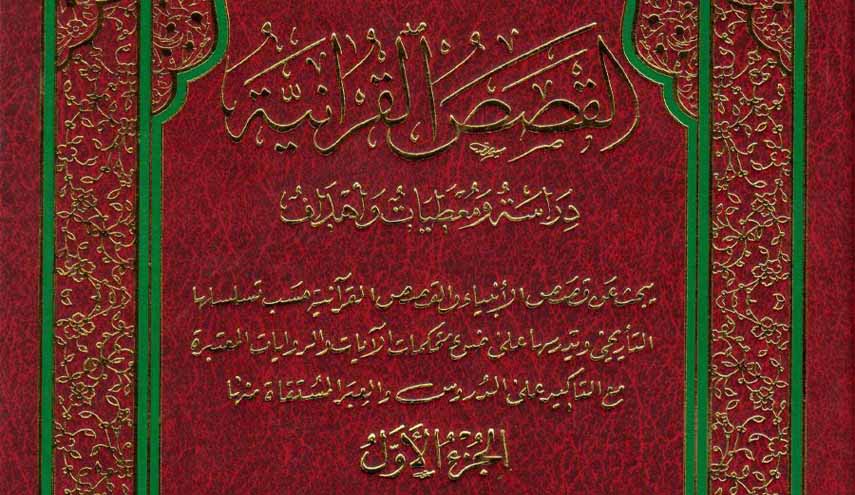 القصص القرآنية
دراسة ومعطيات وأهداف
يبحث عن قصص الأنبياء والقصص القرآنية حسب تسلسلها
التأريخي ويدرسها على ضوء محكمات الآيات والروايات المعتبرة
مع التأكيد على الدروس والعبر المستقاة منها
الجزء الأول